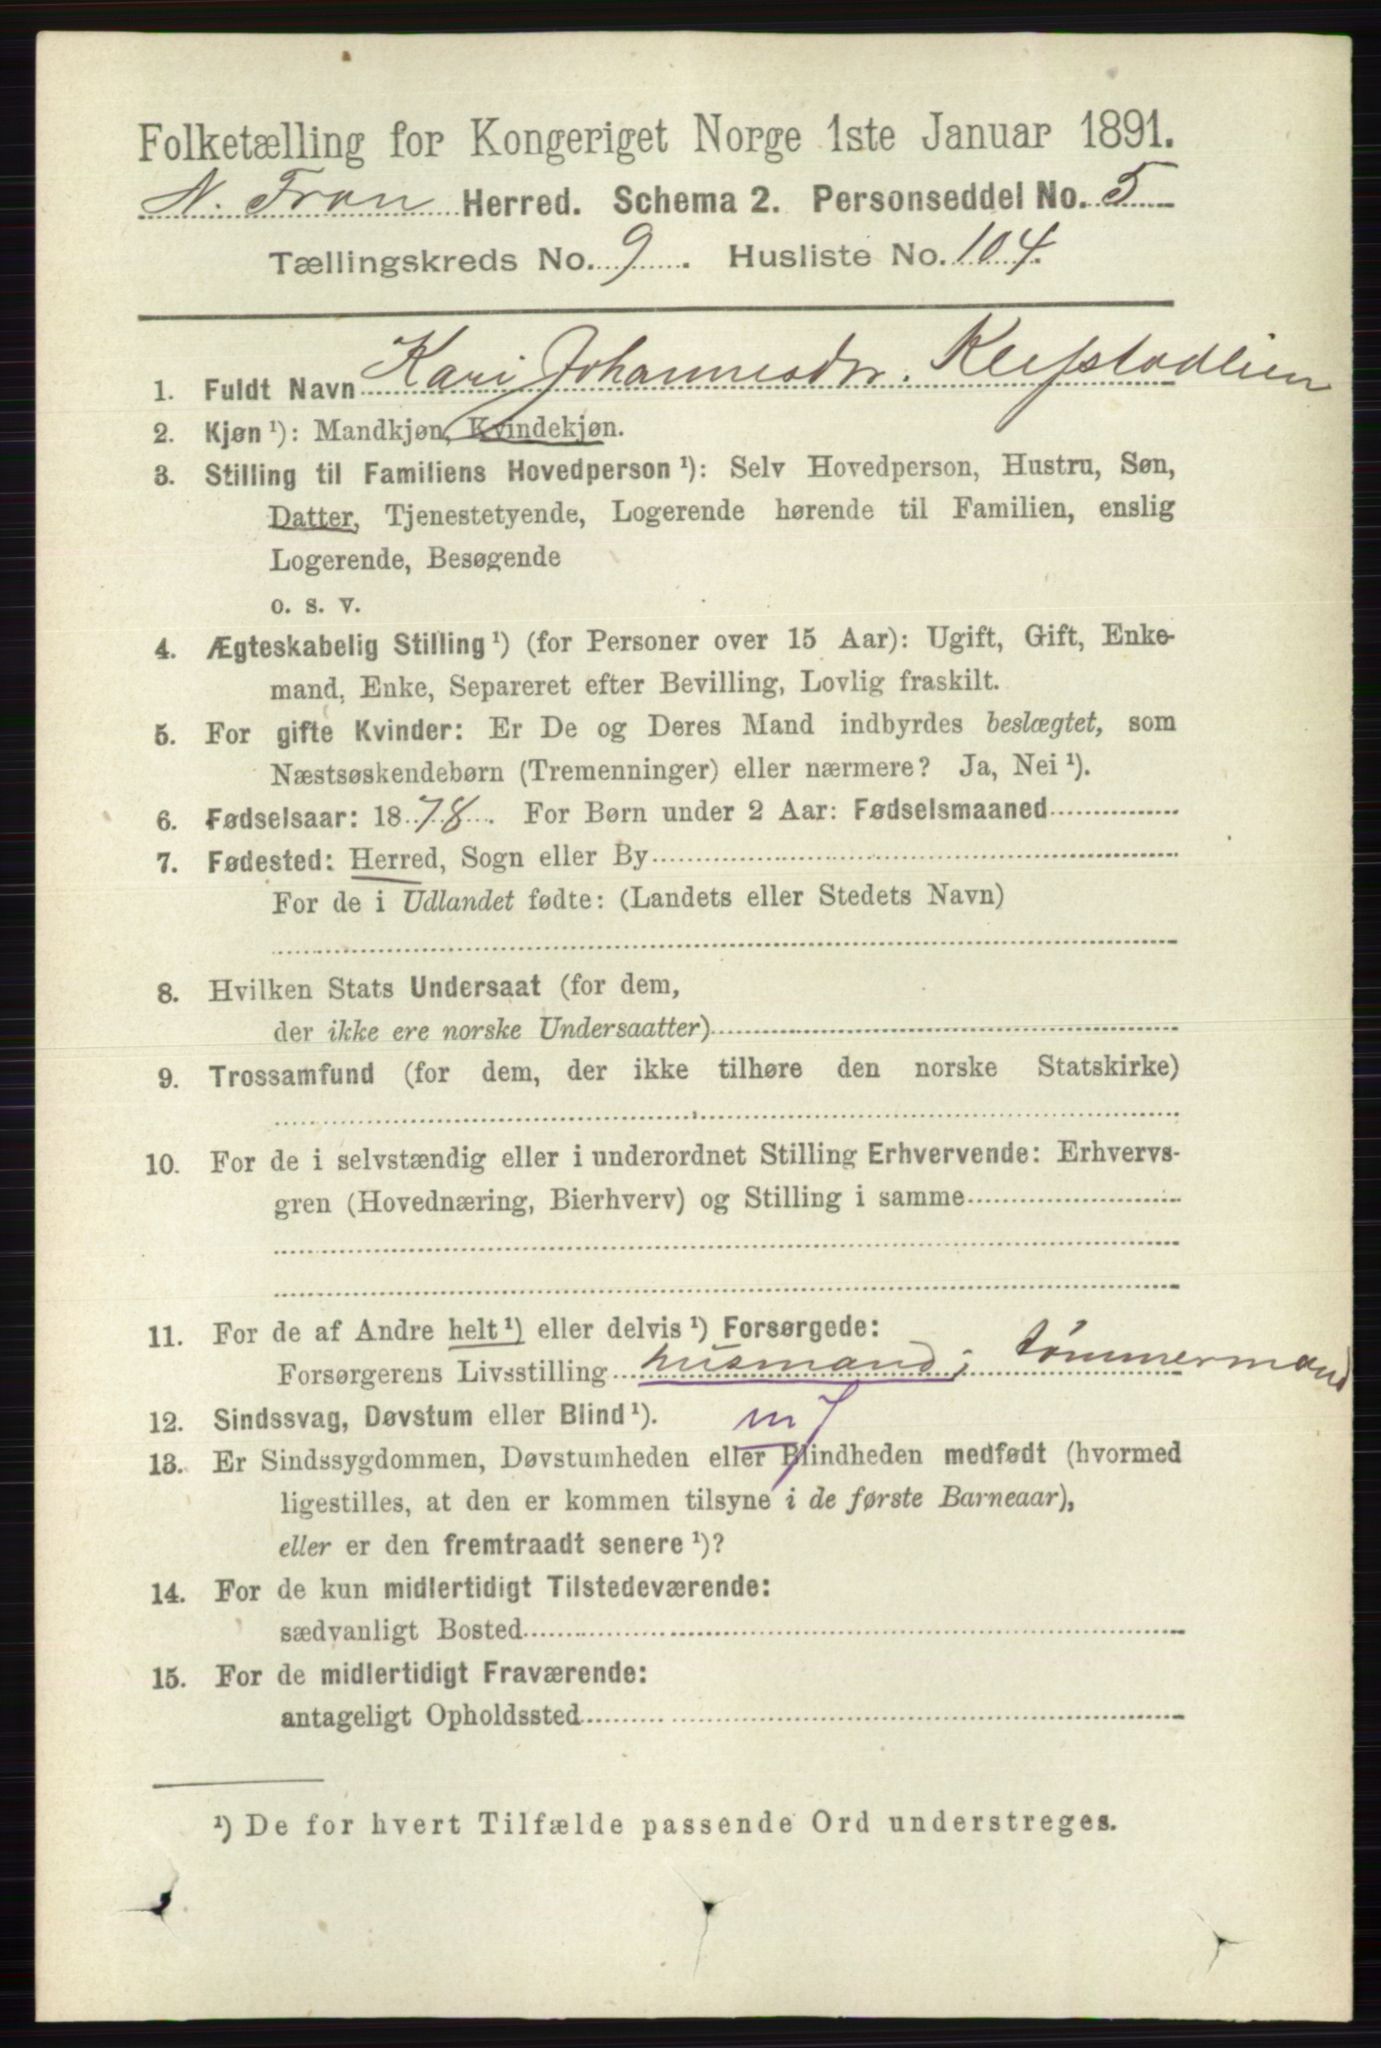 Folketælling for Kongeriget Norge 1ste Januar 1891.
N. Fron Herred. Schema 2. Personseddel No. 5
Tællingskreds No. 9. Husliste No. 104.
1. Fuldt Navn Kari Johannesdtr. Klefstadlien
2. Kjøn ¹): Mandkjøn, Kvindekjøn.
3. Stilling til Familiens Hovedperson ¹): Selv Hovedperson, Hustru, Søn,
Datter, Tjenestetyende, Logerende hørende til Familien, enslig
Logerende, Besøgende
o. s. v.
4. Ægteskabelig Stilling ¹) (for Personer over 15 Aar): Ugift, Gift, Enke-
mand, Enke, Separeret efter Bevilling, Lovlig fraskilt.
5. For gifte Kvinder: Er De og Deres Mand indbyrdes beslægtet, som
Næstsøskendebørn (Tremenninger) eller nærmere? Ja, Nei ¹).
6. Fødselsaar: 1878. For Børn under 2 Aar: Fødselsmaaned
7. Fødested: Herred, Sogn eller By
For de i Udlandet fødte: (Landets eller Stedets Navn)
8. Hvilken Stats Undersaat (for dem,
der ikke ere norske Undersaatter)
9. Trossamfund (for dem, der ikke tilhøre den norske Statskirke)
10. For de i selvstændig eller i underordnet Stilling Erhvervende: Erhvervs-
gren (Hovednæring, Bierhverv) og Stilling i samme
11. For de af Andre helt ¹) eller delvis ¹) Forsørgede:
Forsørgerens Livsstilling husmand; tømmermand
12. Sindssvag, Døvstum eller Blind ¹).
13. Er Sindssygdommen, Døvstumheden eller Blindheden medfødt (hvormed
ligestilles, at den er kommen tilsyne i de første Barneaar),
eller er den fremtraadt senere ¹)?
14. For de kun midlertidigt Tilstedeværende:
sædvanligt Bosted
15. For de midlertidigt Fraværende:
antageligt Opholdssted
¹) De for hvert Tilfælde passende Ord understreges.